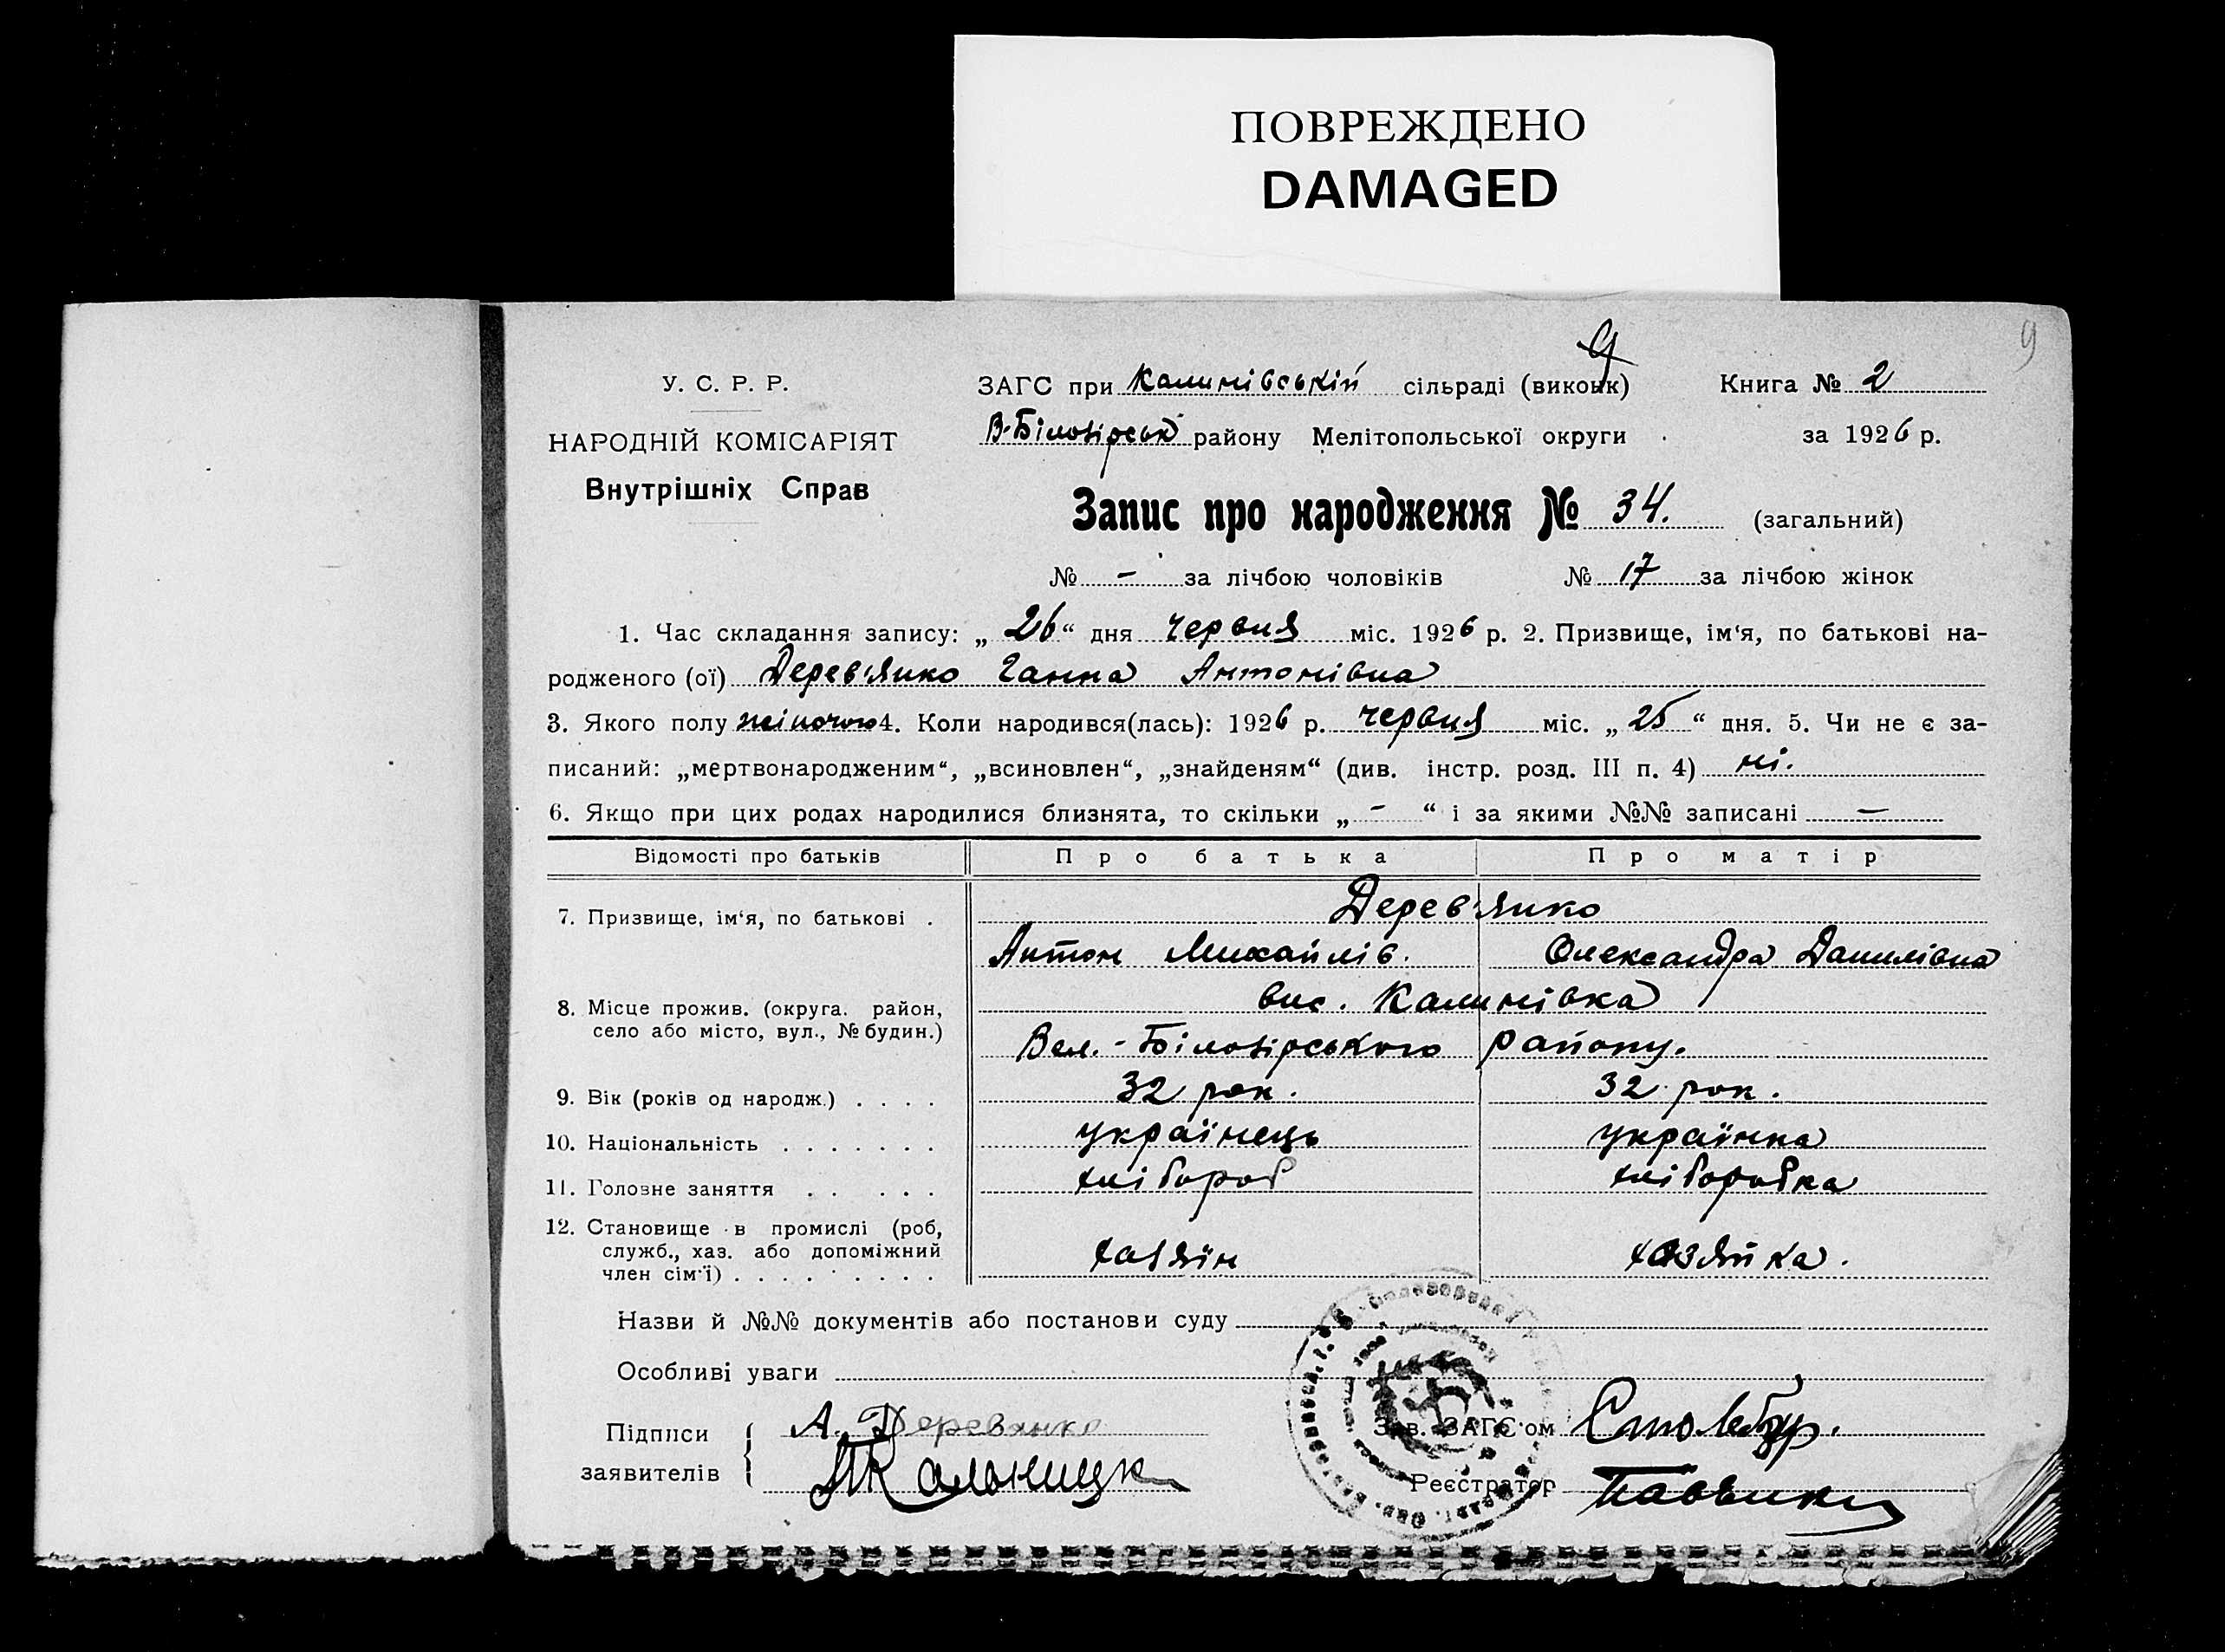 ПОВРЕЖДЕНО
DAMAGED
9
9
У. С. Р. Р.
НАРОДНІЙ КОМІСАРІЯТ
Внутрішніх Справ
ЗАГС при Калинівській сільраді (виконк)
Книга № 2
В-Білозірськ району Мелітопольської округи
за 1926 р.
Запис про народження № 34. (загальний)
№ - за лічбою чоловіків № 17 за лічбою жінок
1. Час складання запису: „ 26 “ дня червня міс. 1926 р. 2. Призвище, ім‘я, по батькові на-
родженого (ої) Дерев'янко Ганна Антонівна
3. Якого полу жіночого 4. Коли народився(лась): 1926 р. червня міс. „ 25 “ дня. 5. Чи не є за-
писаний: „мертвонародженим“, „всиновлен“, „знайденям“ (див. інстр. розд. III п. 4) ні.
6. Якщо при цих родах народилися близнята, то скільки „ - “ і за якими №№ записані —
Відомості про батьків Про батька Про матір
7. Призвище, ім‘я, по батькові . Дерев'янко
Антон Михайлів. Олександра Данилівна
8. Місце прожив. (округа. район,
село або місто, вул., № будин.)
вис. Калинівка
Вел.-Білозірського району.
9. Вік (років од народж.) . . . . 32 рок. 32 рок.
10. Національність . . . . . . . українець українка
11. Головне заняття . . . . . хлібороб хліборобка
12. Становище в промислі (роб,
служб., хаз. або допоміжний
член сім'ї) . . . . . . . . .
хазяїн хазяйка.
Назви й №№ документів або постанови суду
Особливі уваги
Підписи
заявителів
А. Деревянко
Зав. ЗАГС'ом
Реєстратор